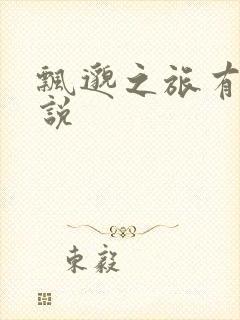 飄邈之旅有
說
東毅